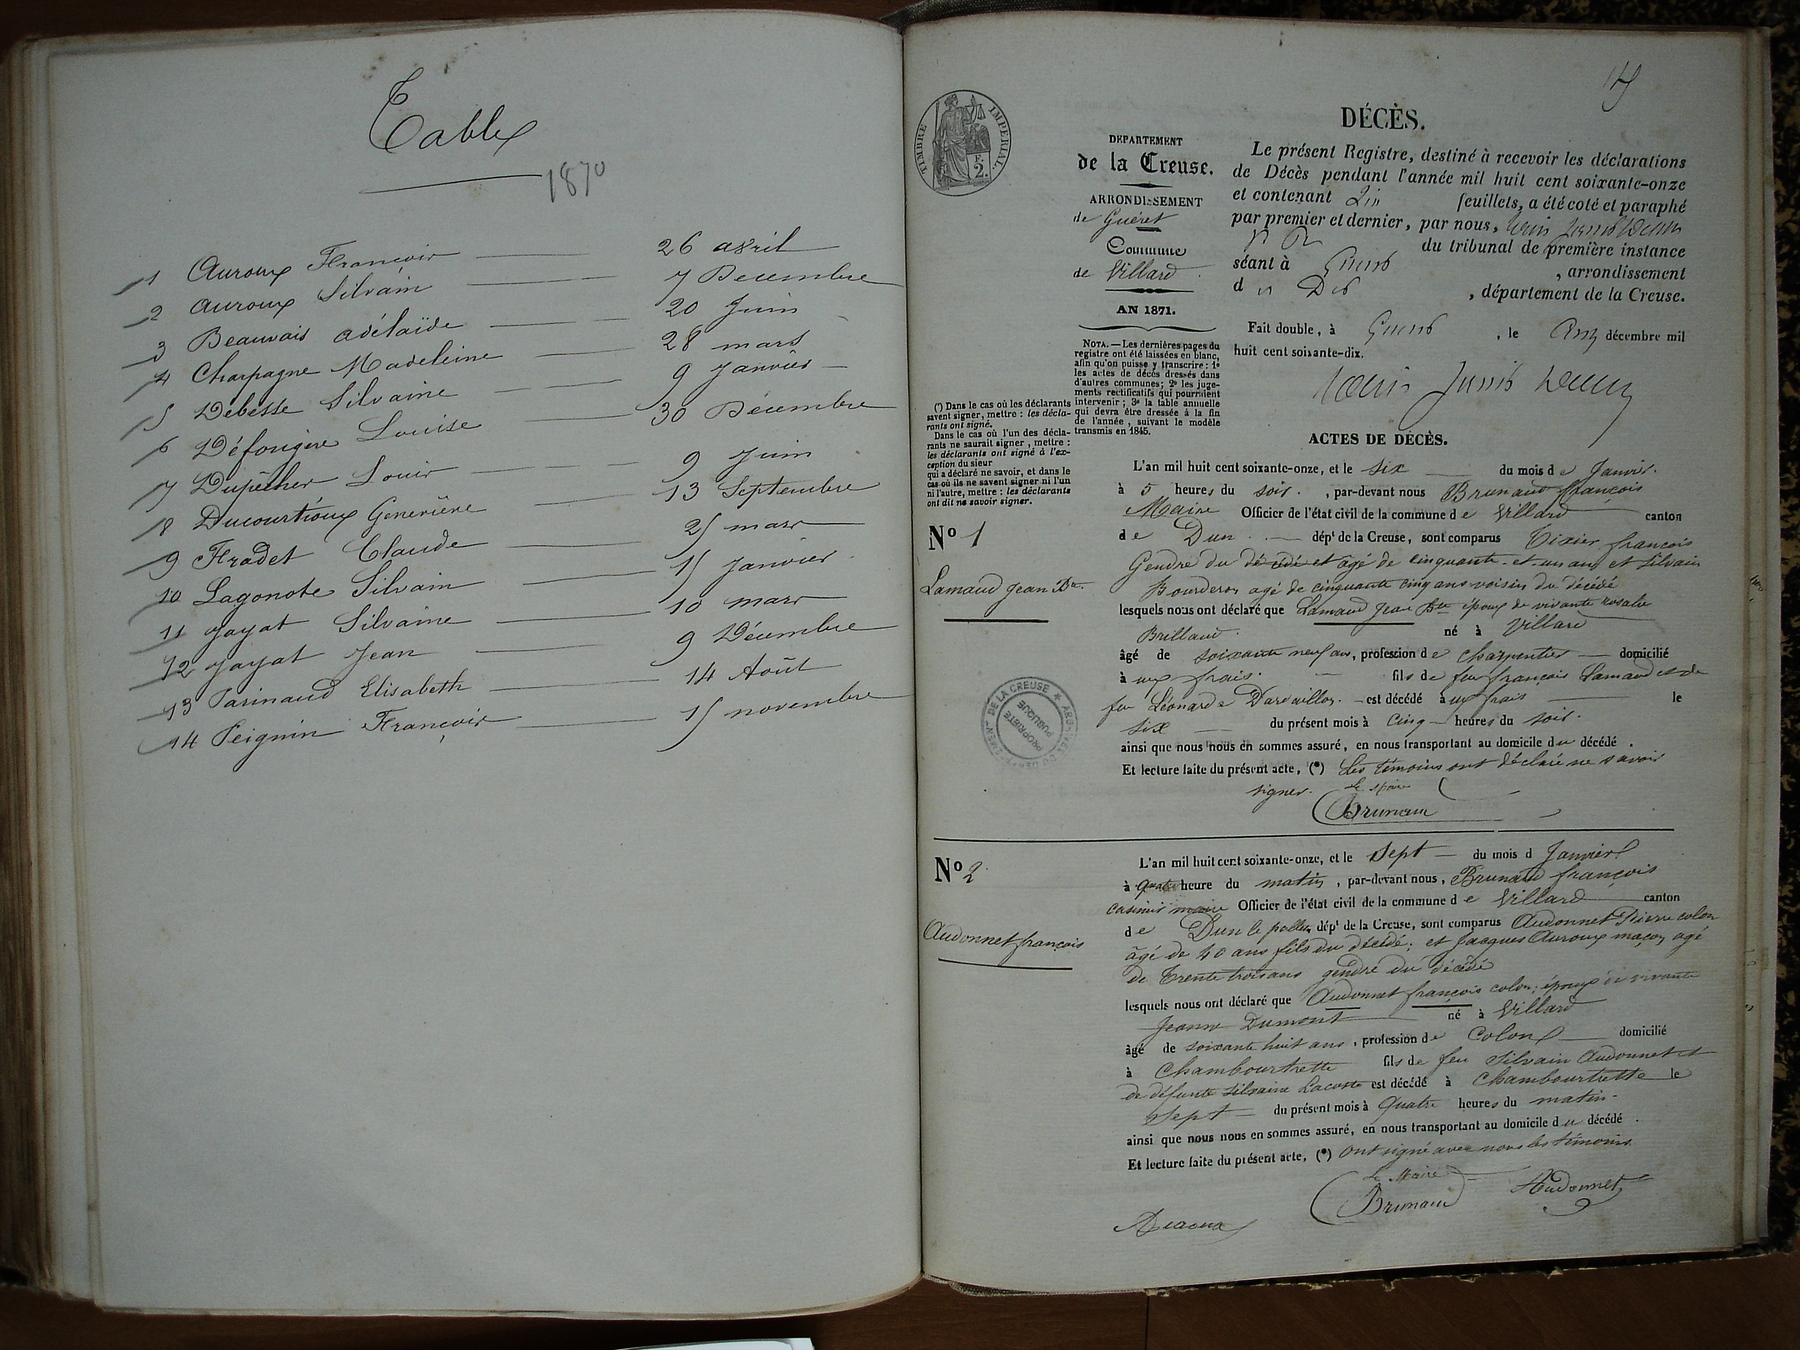 Table
1870
1 Auroux François 26 avril
2 Auroux Silvain 7 Decembre
3 Beauvais adélaïde 20 Juin
4 Charpagne Madeleine 28 mars
5 Debesse Silvaine 9 Janvier
6 Défougère Louise 30 Décembre
7 Dupêcher Louis 9 Juin
8 Ducourtioux Geneviève 13 Septembre
9 Fradet Claude 25 mars
10 Lagonote Silvain 15 Janvier
11 Jayat Silvaine 10 mars
12 Jayat Jean 9 Décembre
13 Parinaud Elisabeth 14 Août
14 Peignin François 15 novembre
TIMBRE IMPERIAL.
F.
2.
DEPARTEMENT
de la Creuse.
ARRONDISSEMENT
de Guéret
Commune
de Villard
AN 1871.
NOTA. — Les dernières pages du
registre ont été laissées en blanc,
afin qu'on puisse y transcrire : 1º
les actes de décès dressés dans
d'autres communes; 2º les juge-
ments rectificatifs qui pourraient
intervenir ; 3º la table annuelle
qui devra être dressée à la fin
de l'année , suivant le modèle
transmis en 1845.
(*) Dans le cas où les déclarants
savent signer, mettre : les décla-
rants ont signé.
Dans le cas où l'un des décla-
rants ne saurait signer , mettre :
les déclarants ont signé à l'ex-
ception du sieur
qui a déclaré ne savoir, et dans le
cas où ils ne savent signer ni l'un
ni l'autre, mettre : les déclarants
ont dit ne savoir signer.
DÉCÈS.
Le présent Registre, destiné à recevoir les déclarations
de Décès pendant l'année mil huit cent soixante-onze
et contenant feuillets, a été coté et paraphé
par premier et dernier, par nous,
du tribunal de première instance
séant à , arrondissement
d , département de la Creuse.
Fait double, à , le décembre mil
huit cent soixante-dix.
ACTES DE DÉCÈS.
Nº 1
Lamaud Jean Bte
L'an mil huit cent soixante-onze, et le six du mois de Janvier.
à 5 heures du soir. , par-devant nous Brunaud françois
Maire Officier de l'état civil de la commune de Villard canton
de Dun dépt de la Creuse, sont comparus Tixier françois
Gendre du décédé et agé de cinquante-et-un ans et Silvain
Bourderos agé de cinquante cinq ans voisin du décédé
lesquels nous ont déclaré que Lamaud Jean Bte époux de vivante rosalie
Brillaud. né à Villard
âgé de soixante neuf ans, profession de Charpentier domicilié
à aux frais. fils de feu françois Lamaud et de
feu Léonarde est décédé à aux frais le
six du présent mois à Cinq heures du soir.
ainsi que nous nous en sommes assuré, en nous transportant au domicile du décédé .
Et lecture faite du présent acte, (*) Les témoins ont déclaré ne savoir
signer. Le Maire
Brunaud
DEPARTEMENT DE LA CREUSE ★ ARCHIVES DU
PROPRIÉTÉ
PUBLIQUE
Nº 2
Audonnet françois
L'an mil huit cent soixante-onze, et le Sept du mois d Janvier
à quatre heure du matin , par-devant nous, Brunaud françois
casimir maire Officier de l'état civil de la commune de Villard canton
de Dun le dépt de la Creuse, sont comparus Audonnet Pierre colon
âgé de 40 ans fils du décédé; et Jacques Auroux maçon agé
de Trente trois ans gendre du décédé
lesquels nous ont déclaré que Audonnet françois colon; époux de vivante
Jeanne Dumont né à Villard
âgé de soixante huit ans , profession de Colon domicilié
à Chambourtrette fils de feu Silvain Audonnet et
de défunte Silvaine Lacoste est décédé à Chambourtrette le
Sept du présent mois à Quatre heures du matin.
ainsi que nous nous en sommes assuré, en nous transportant au domicile du décédé .
Et lecture faite du présent acte, (*) Ont signé avec nous les témoins.
Le Maire
Brunaud Audonnet